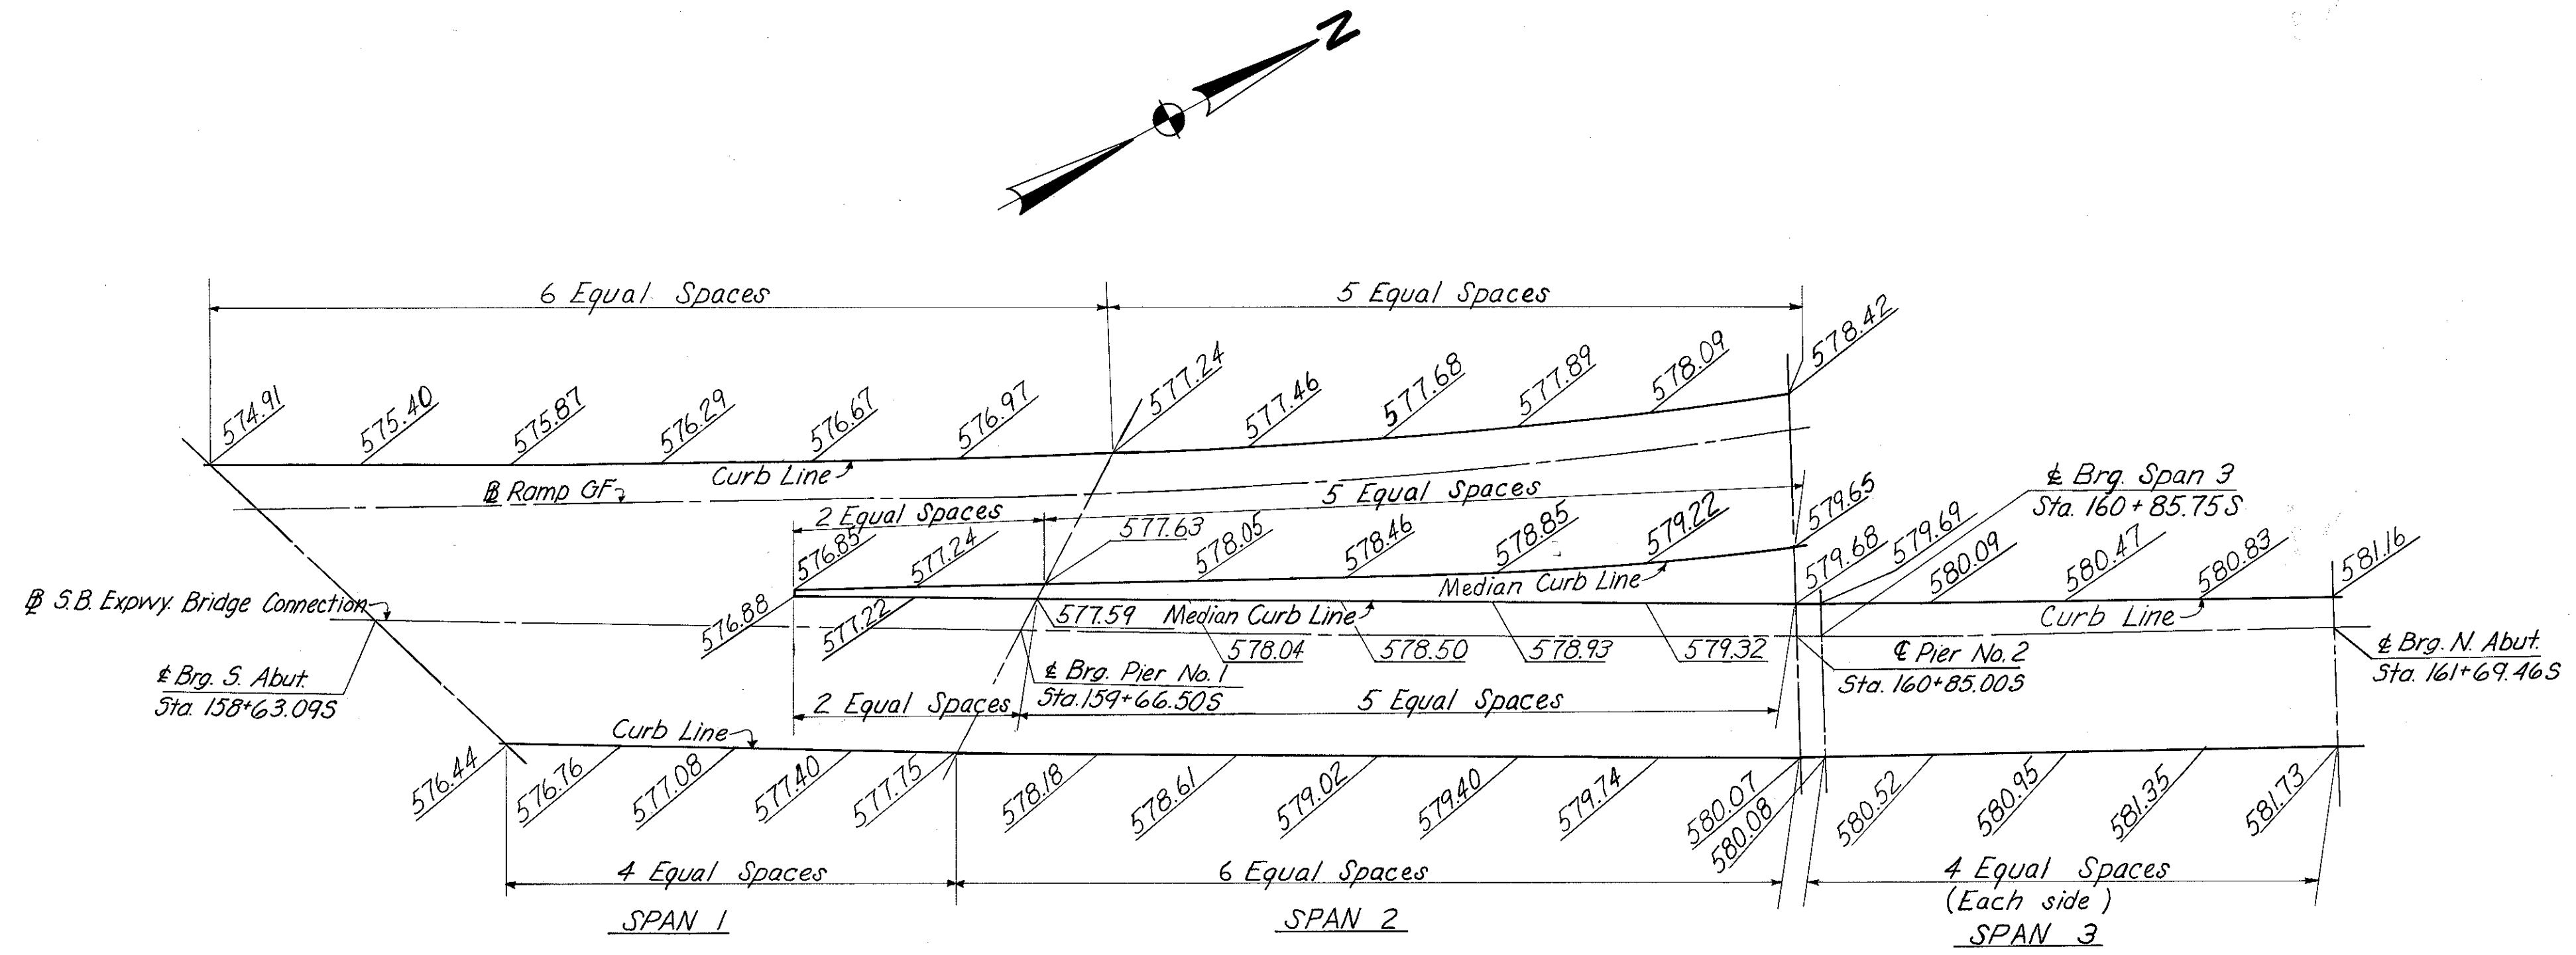 N
6 Equal Spaces
5 Equal Spaces
574.91
575.40
575.87
576.29
576.67
576.97
577.24
577.46
577.68
577.89
578.09
578.42
Curb Line
℄ Brg. Span 3
Sta. 160+85.75S
B Ramp GF
5 Equal Spaces
2 Equal Spaces
576.85
577.24
577.63
578.05
578.46
578.85
579.22
579.65
579.68
579.69
580.09
580.47
580.83
581.16
Median Curb Line
B S.B. Expwy. Bridge Connection
576.88
577.22
577.59
Median Curb Line
578.04
578.50
578.93
579.32
Curb Line
℄ Pier No. 2
Sta. 160+85.00S
℄ Brg. N. Abut.
Sta. 161+69.46S
℄ Brg. S. Abut.
Sta. 158+63.09S
℄ Brg. Pier No. 1
Sta. 159+66.50S
2 Equal Spaces
5 Equal Spaces
Curb Line
576.44
576.76
577.08
577.40
577.75
578.18
578.61
579.02
579.40
579.74
580.07
580.08
580.52
580.95
581.35
581.73
4 Equal Spaces
6 Equal Spaces
4 Equal Spaces
(Each side)
SPAN 1
SPAN 2
SPAN 3